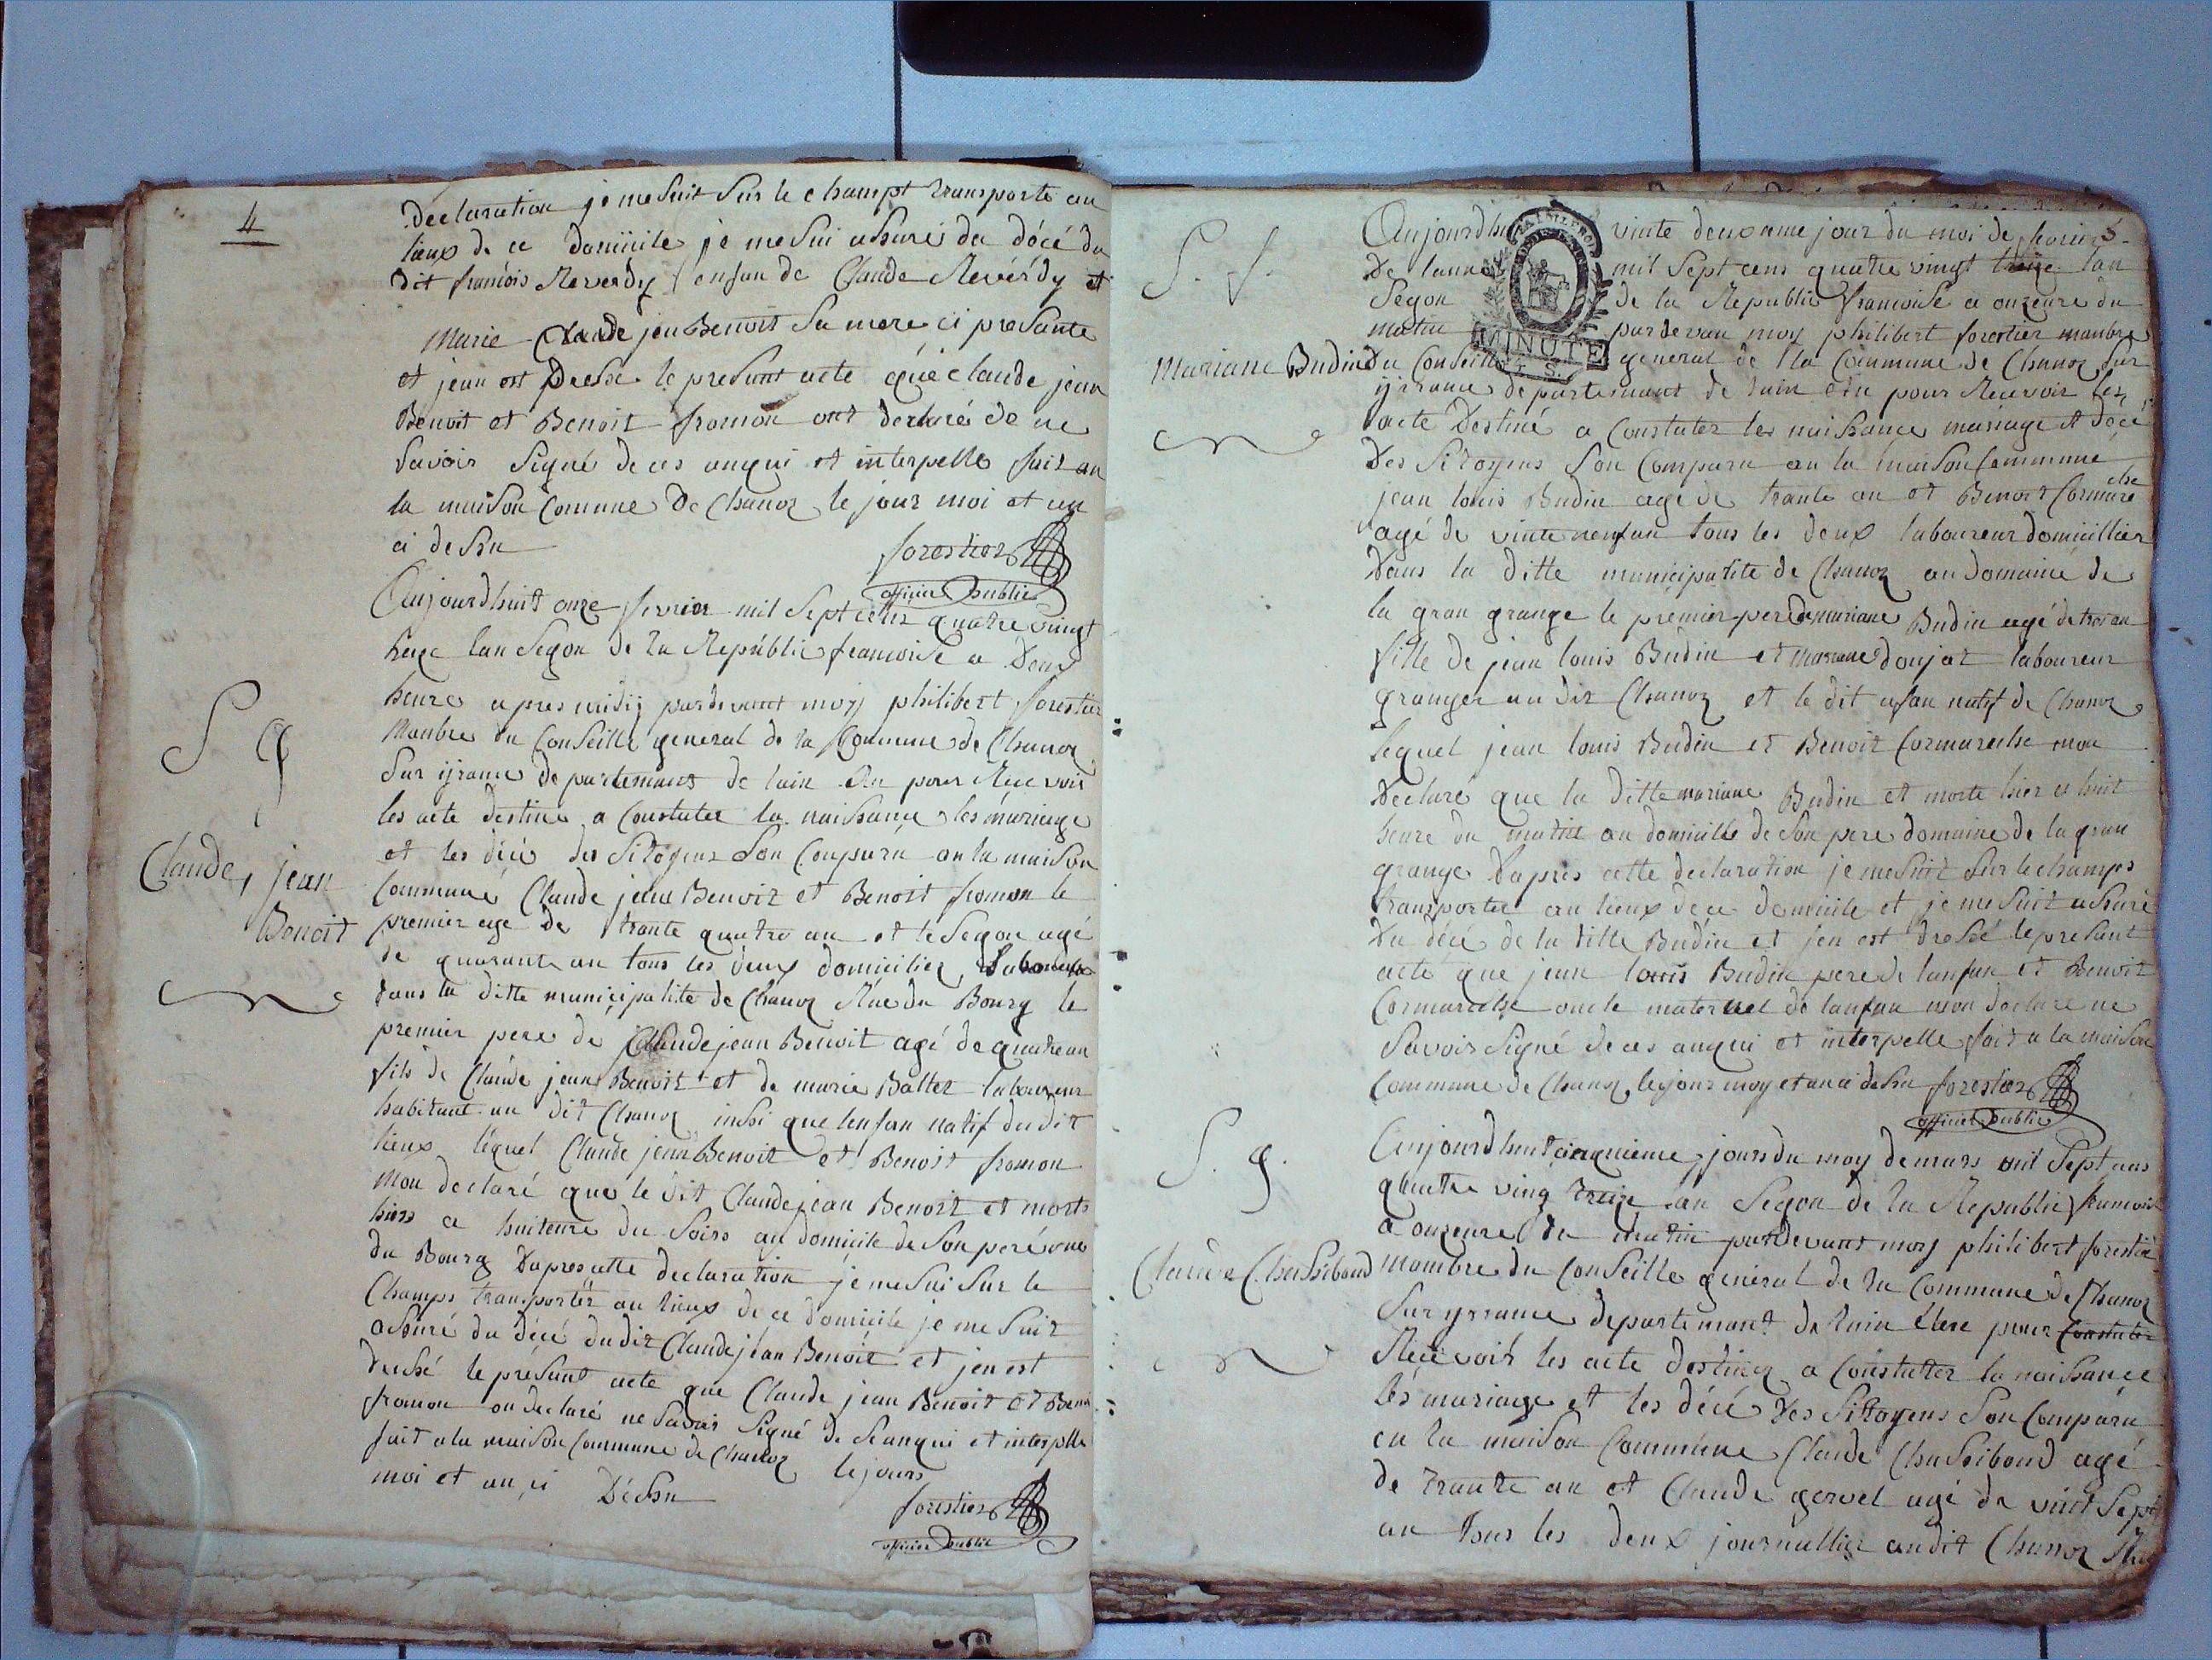 4
declaration je me suit sur le champt transporte au
lieux de ce domicile je me sui assuré du décé du
dit francois Reverdy enfan de Claude Reverdy et
Marie Claude jeu Benoit sa mere ci presante
et jean est dressé le presant acte que claude jean
Benoit et Benoit fromon ont declaré de ne
savoir signé de ces anqui et interpelle fait an
la maison Comune de Chanoz le jour moi et an
ci dessu
forestier
officier public
Aujourdhuit onze fevrier mil sept cens quatre vingt
treze lan segon de la Republic francoise a deux
heure apres midij pardevant moy philibert forestier
Manbre du Conseille general de la Commune de Chanoz
Sur ijrance departemant de lain elu pour Recevoir
les acte destine a Constater la naissance les mariage
et les décé des Sitoyens son Conparu an la maison
Commune Claude jean Benoit et Benoit fromon le
premier age de trante quatre an et le segon agé
de quarante an tous les deux domicilier
dans la ditte municipalité de Chanoz Rue du Bourg le
premier pere de Claude jean Benoit agé de quatre an
fils de Claude jean Benoit et de marie Balter laboureur
habitant au dit Chanoz insi que lenfan natif du dit
lieux lequel Claude jean Benoit et Benoit fromon
mon declaré que le dit Claude jean Benoit et morts
hiers a huiteure du soirs au domicile de son pere rue
du Bourg Dapres cette declaration je me sui sur le
Champs transporter au lieux de ce domicile je me suit
assuré du décé du dit Claude jean Benoit et jen est
dressé le présant acte que Claude jean Benoit et Benoi
fromon on declaré ne savoir signé de seanqui et interpelle
fait a la maison Commune de Chanoz le jours
moi et an ci Déssu
forestier
officier public
S g
Claude, jean
Benoit
Aujourdhu vinte deuxame jour du moi de fevrier
De lanne mil sept cens quatre vingt treize lan
Segon de la Republic francoise a onzeure du
matin pardevan moy philibert forestier manbre
MINUTE
Du Conseille general de la Commune de Chanoz sur
yrance departemant de lain elu pour Recevoir les
acte Destiné a Constater les naissance mariage et décé
Des Sitoyens son Comparu an la maison Commune
jean louis Budin agé de trante an et Benoit Cormarèche
agé de vinte neuf an tous les deux laboureur domicillier
Dans la ditte municipalite de Chanoz au domaine de
la gran grange le premier pere de mariane Budin agé de troi an
fille de jean louis Budin et mariane doujat laboureur
granger au dit Chanoz et le dit enfan natif de Chanoz
lequel jean louis Budin et Benoit Cormareche mon
Declaré que la ditte mariane Budin et morte hier a huit
heure du matin au domicille de son pere domaine de la gran
grange Dapres cette declaration je me suit sur le champs
transporter au lieux de ce domicile et je me suit assuré
Du décé de la ditte Budin et jen est dressé le presant
acte que jean louis Budin pere de lanfan et Benoit
Cormareche oncle maternel de lanfan mon declare ne
savoir signé de ces anqui et interpelle fait a la maison
Commune de Chanoz le jour moy et an ci dessu forestier
officier public
S. f.
Mariane Budin
Aujourdhuit cinquieme jours du moy de mars mil sept cens
quatre ving treize lan Segon de la Republic francoise
a onzeure du matin pardevant moy philibert forestier
Mambre du Conseille general de la Commune de Chanoz
Sur yrrance departemant de lain élere pour Constater
Recevoir les acte destinez a Constatter la naissance
lés mariage et les décé Des Sittoyens son Comparu
en la maison Commune Claude Chassiboud agé
de trante an et Claude gorvel agé de vint sept
an tous les deux journallier audit Chanoz
S. g.
Claude Chassiboud